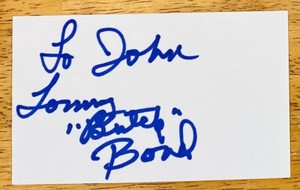 To John
Tommy
"Butch"
Bond